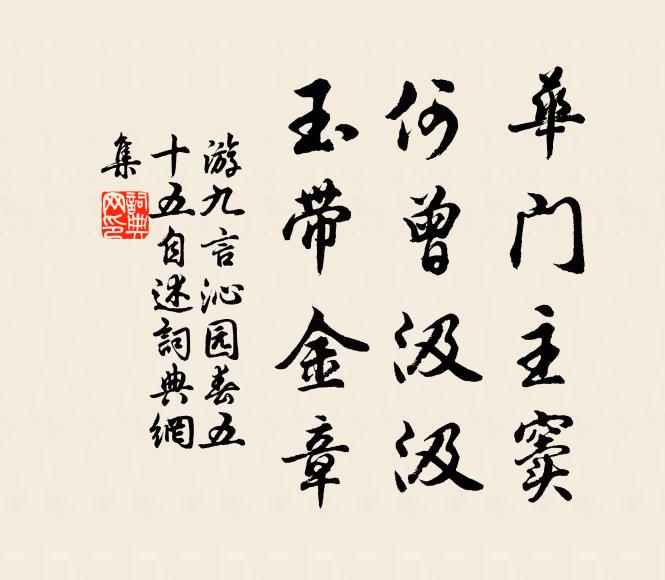 華门主窦
何曾汲汲
玉带金章
游九言沁园春五
十五自述詞典網
集
詞典
网印